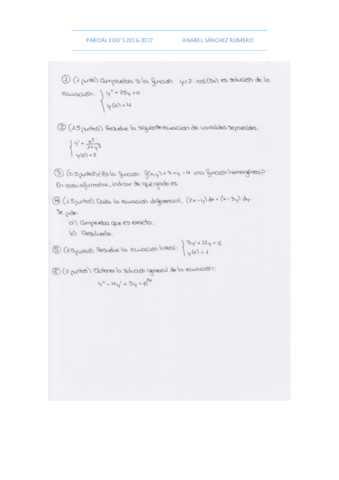 PARCIAL EDO'S 2016-2017 ANABEL SÁNCHEZ ROMERO
① (1 punto) Comprueba si la función y=2·cos(5x) es solución de la
ecuación: { y''+25y=0
y(0)=4
② (1.5 puntos) Resuelve la siguiente ecuación de variables separables.
{ y'=
y(0)=2
③ (0.5 puntos) ¿Es la función f(x,y)=x-y-4 una función homogénea?
En caso afirmativo, indicar de qué grado es.
④ (1.5 puntos) Dada la ecuación diferencial, (2x-y)dx=(x-3y)dy.
Se pide:
a) Comprueba que es exacta.
b) Resolverla.
⑤ (1.5 puntos) Resuelve la ecuación lineal: {
y(0)=1
⑥ (2 puntos) Obtener la solución general de la ecuación:
y''-4y'+3y=